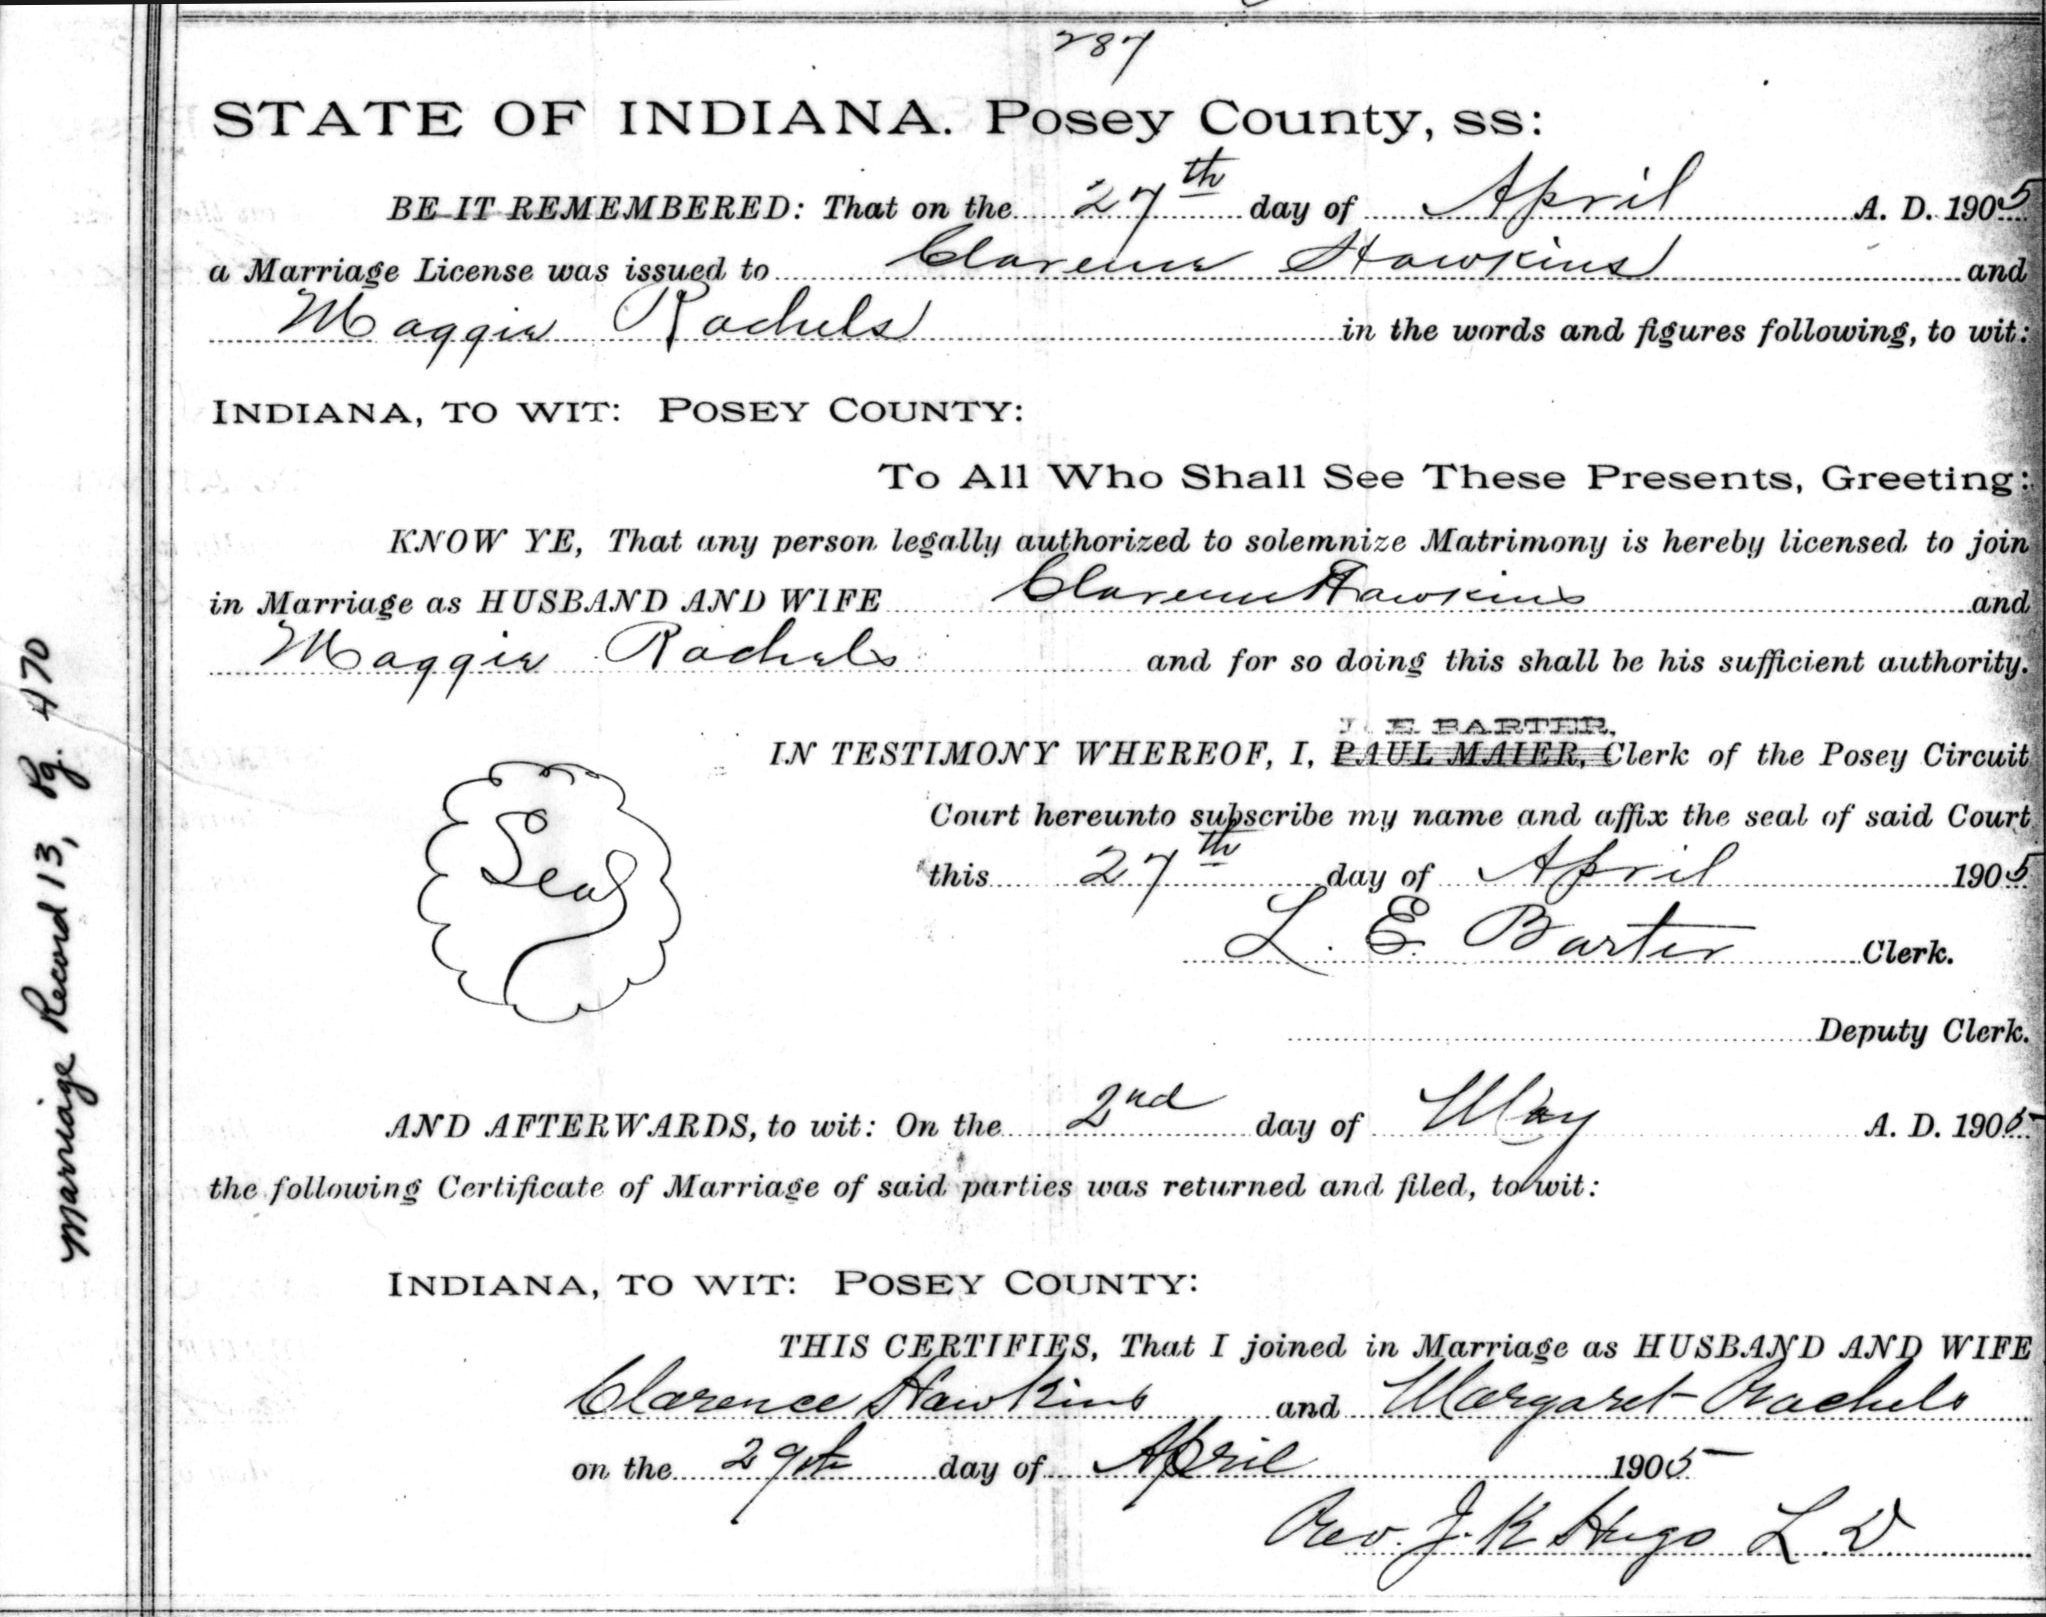 287
STATE OF INDIANA. Posey County, ss:
BE IT REMEMBERED: That on the 27th day of April A. D. 1905
a Marriage License was issued to Clarence Hawkins and
Maggie Rachels in the words and figures following, to wit:
INDIANA, TO WIT: POSEY COUNTY:
To All Who Shall See These Presents, Greeting:
KNOW YE, That any person legally authorized to solemnize Matrimony is hereby licensed to join
in Marriage as HUSBAND AND WIFE Clarence Hawkins and
Maggie Rachels and for so doing this shall be his sufficient authority.
L. E. BARTER,
IN TESTIMONY WHEREOF, I, PAUL MAIER, Clerk of the Posey Circuit
Court hereunto subscribe my name and affix the seal of said Court
this 27th day of April 1905
Seal
L. E. Barter Clerk.
Deputy Clerk.
AND AFTERWARDS, to wit: On the 2nd day of May A. D. 1905
the following Certificate of Marriage of said parties was returned and filed, to wit:
INDIANA, TO WIT: POSEY COUNTY:
THIS CERTIFIES, That I joined in Marriage as HUSBAND AND WIFE
Clarence Hawkins and Margaret Rachels
on the 29th day of April 1905
Rev. J. K Hugo L. D
Marriage Record 13, Pg. 470